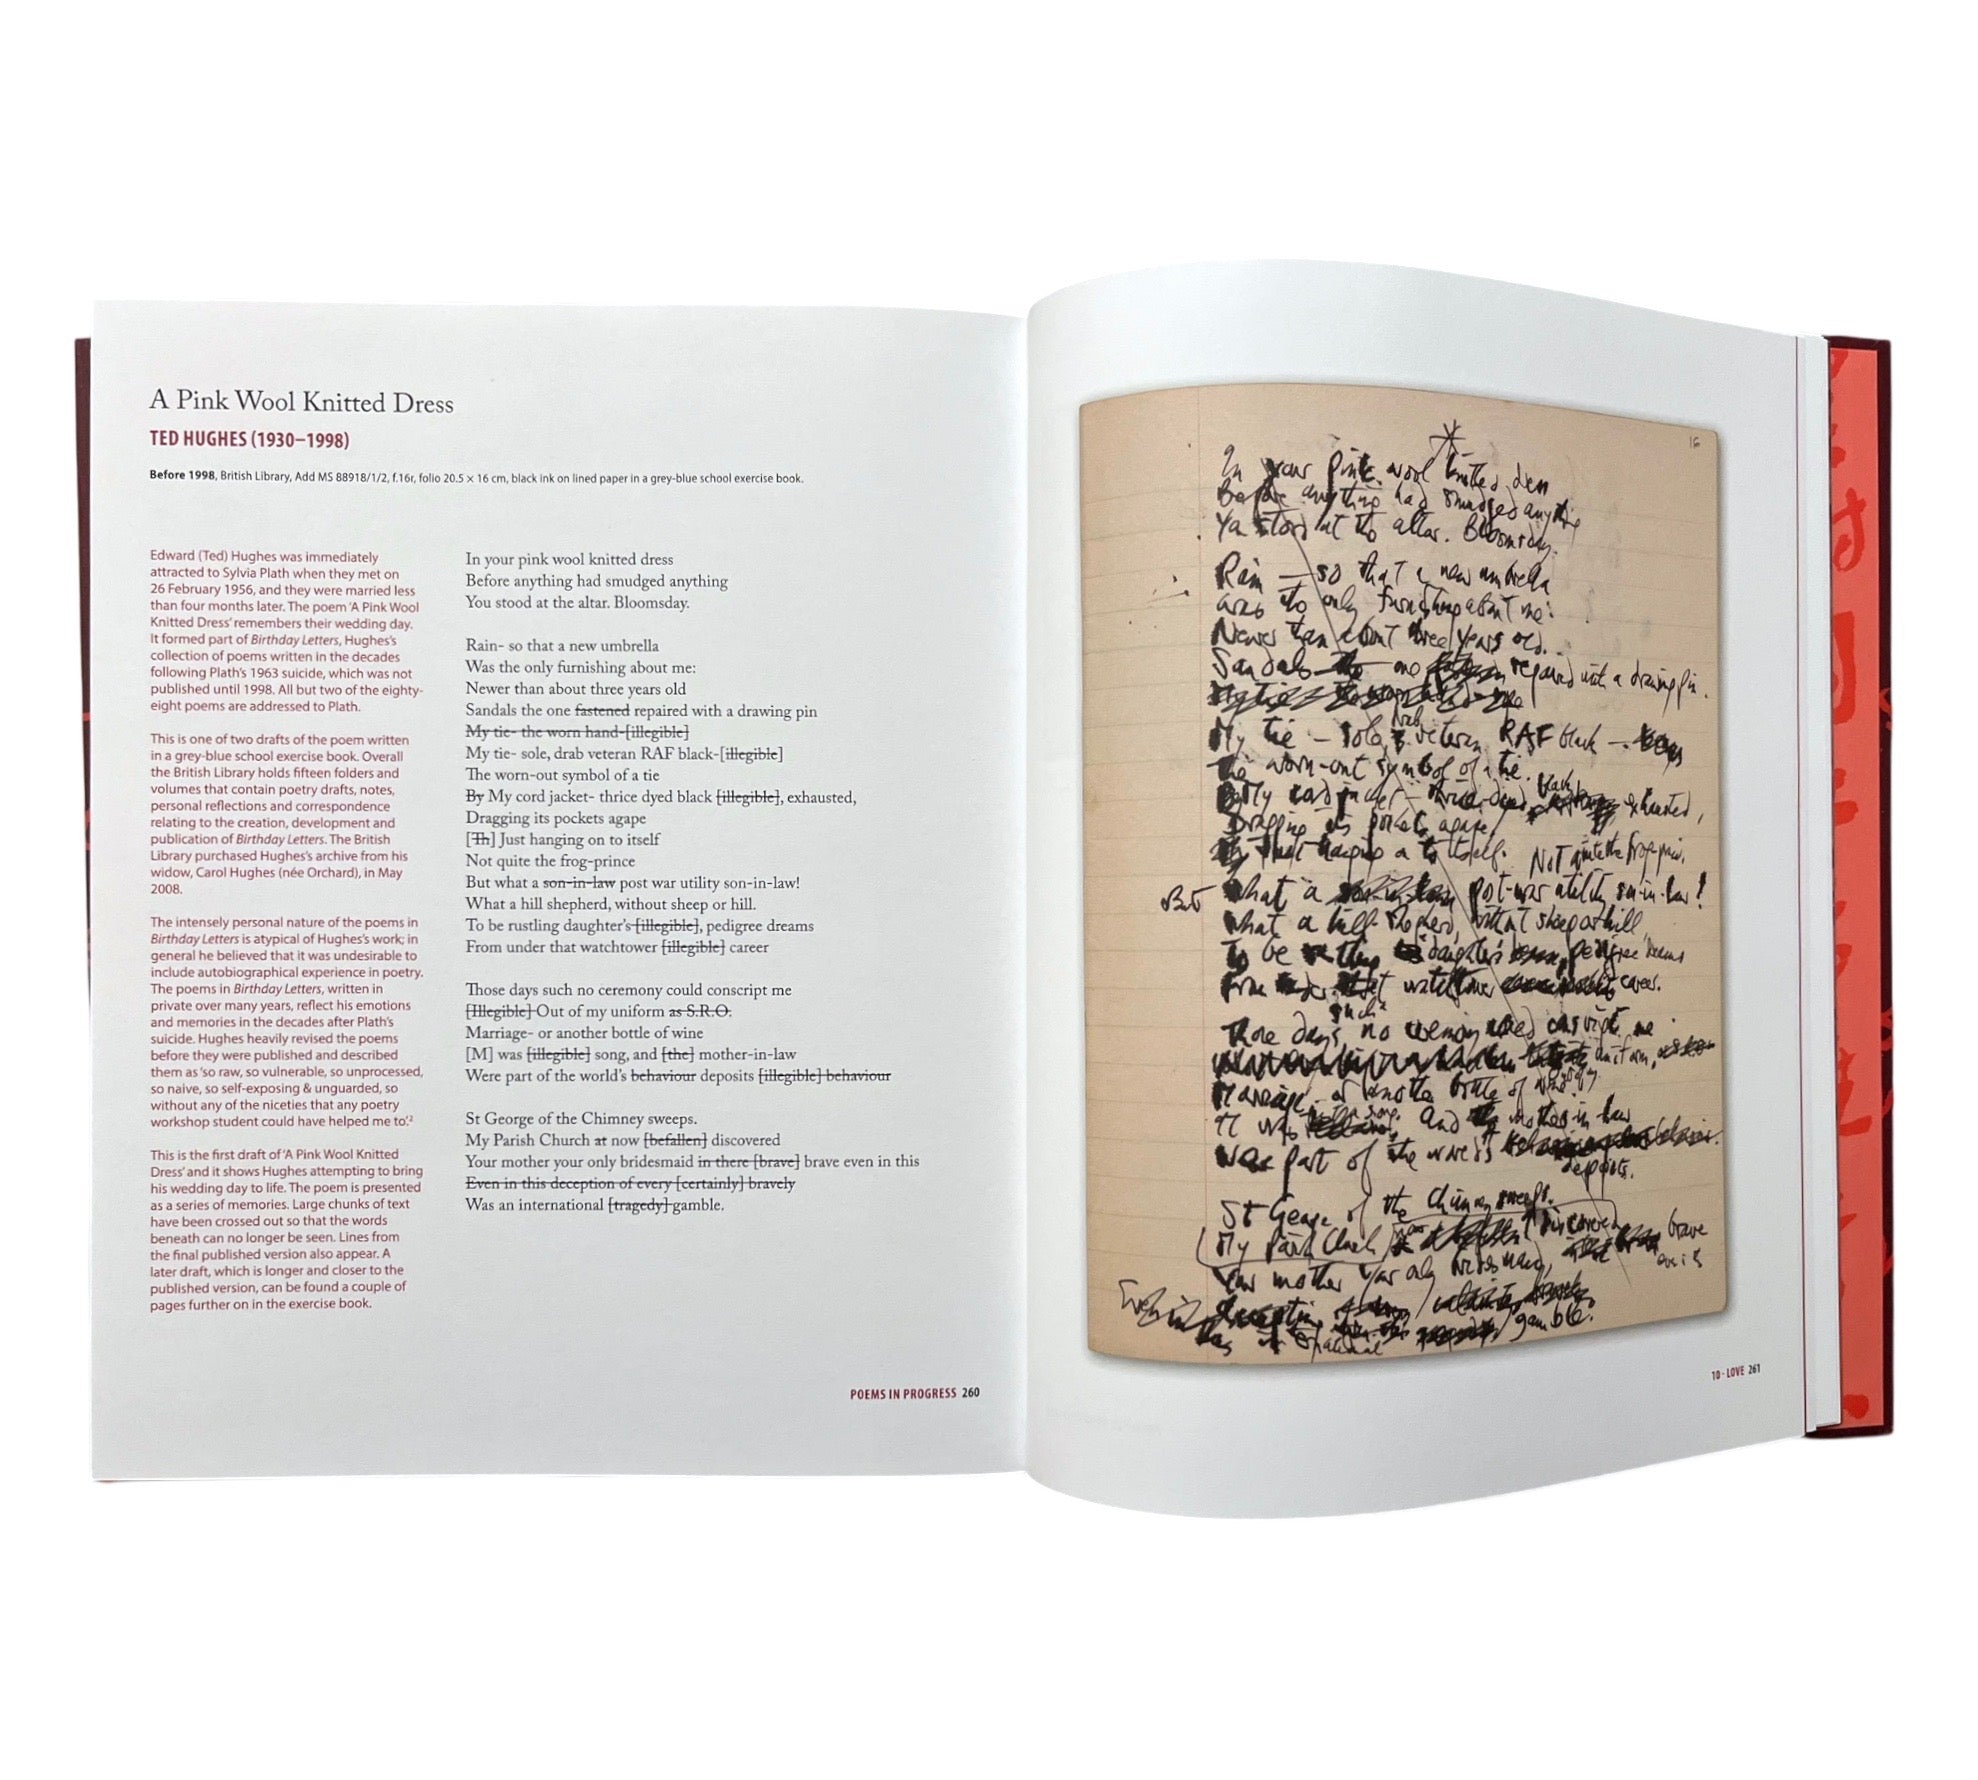 A Pink Wool Knitted Dress
TED HUGHES (1930–1998)
Before 1998, British Library, Add MS 88918/1/2, f.16r, folio 20.5 × 16 cm, black ink on lined paper in a grey-blue school exercise book.
Edward (Ted) Hughes was immediately
attracted to Sylvia Plath when they met on
26 February 1956, and they were married less
than four months later. The poem ‘A Pink Wool
Knitted Dress’ remembers their wedding day.
It formed part of Birthday Letters, Hughes’s
collection of poems written in the decades
following Plath’s 1963 suicide, which was not
published until 1998. All but two of the eighty-
eight poems are addressed to Plath.
This is one of two drafts of the poem written
in a grey-blue school exercise book. Overall
the British Library holds fifteen folders and
volumes that contain poetry drafts, notes,
personal reflections and correspondence
relating to the creation, development and
publication of Birthday Letters. The British
Library purchased Hughes’s archive from his
widow, Carol Hughes (née Orchard), in May
2008.
The intensely personal nature of the poems in
Birthday Letters is atypical of Hughes’s work; in
general he believed that it was undesirable to
include autobiographical experience in poetry.
The poems in Birthday Letters, written in
private over many years, reflect his emotions
and memories in the decades after Plath’s
suicide. Hughes heavily revised the poems
before they were published and described
them as ‘so raw, so vulnerable, so unprocessed,
so naive, so self-exposing & unguarded, so
without any of the niceties that any poetry
workshop student could have helped me to’.²
This is the first draft of ‘A Pink Wool Knitted
Dress’ and it shows Hughes attempting to bring
his wedding day to life. The poem is presented
as a series of memories. Large chunks of text
have been crossed out so that the words
beneath can no longer be seen. Lines from
the final published version also appear. A
later draft, which is longer and closer to the
published version, can be found a couple of
pages further on in the exercise book.
In your pink wool knitted dress
Before anything had smudged anything
You stood at the altar. Bloomsday.
Rain- so that a new umbrella
Was the only furnishing about me:
Newer than about three years old
Sandals the one fastened repaired with a drawing pin
My tie- the worn hand-[illegible]
My tie- sole, drab veteran RAF black-[illegible]
The worn-out symbol of a tie
By My cord jacket- thrice dyed black [illegible], exhausted,
Dragging its pockets agape
[Th] Just hanging on to itself
Not quite the frog-prince
But what a son-in-law post war utility son-in-law!
What a hill shepherd, without sheep or hill.
To be rustling daughter’s [illegible], pedigree dreams
From under that watchtower [illegible] career
Those days such no ceremony could conscript me
[Illegible] Out of my uniform as S.R.O.
Marriage- or another bottle of wine
[M] was [illegible] song, and [the] mother-in-law
Were part of the world’s behaviour deposits [illegible] behaviour
St George of the Chimney sweeps.
My Parish Church at now [befallen] discovered
Your mother your only bridesmaid in there [brave] brave even in this
Even in this deception of every [certainly] bravely
Was an international [tragedy] gamble.
POEMS IN PROGRESS 260
16
In your pink wool knitted dress
Before anything had smudged anything
You stood at the altar. Bloomsday.
Rain — so that a new umbrella
was the only furnishing about me:
Newer than about three years old.
Sandals the one repaired with a drawing pin.
My tie — sole, drab veteran RAF black —
The worn-out symbol of a tie.
My cord jacket — thrice dyed black exhausted,
Dragging its pockets agape
Just hanging on to itself. Not quite the frog-prince,
But what a post-war utility son-in-law!
What a hill-shepherd, without sheep or hill,
To be daughter's pedigree dreams
From under that watchtower career.
Those days such no ceremony could conscript me
uniform,
Marriage — or another bottle of wine
and the mother-in-law
were part of the world's
deposits.
St George of the Chimney sweeps.
My Parish Church discovered
Your mother your only bridesmaid, brave
gamble.
10 · LOVE 261